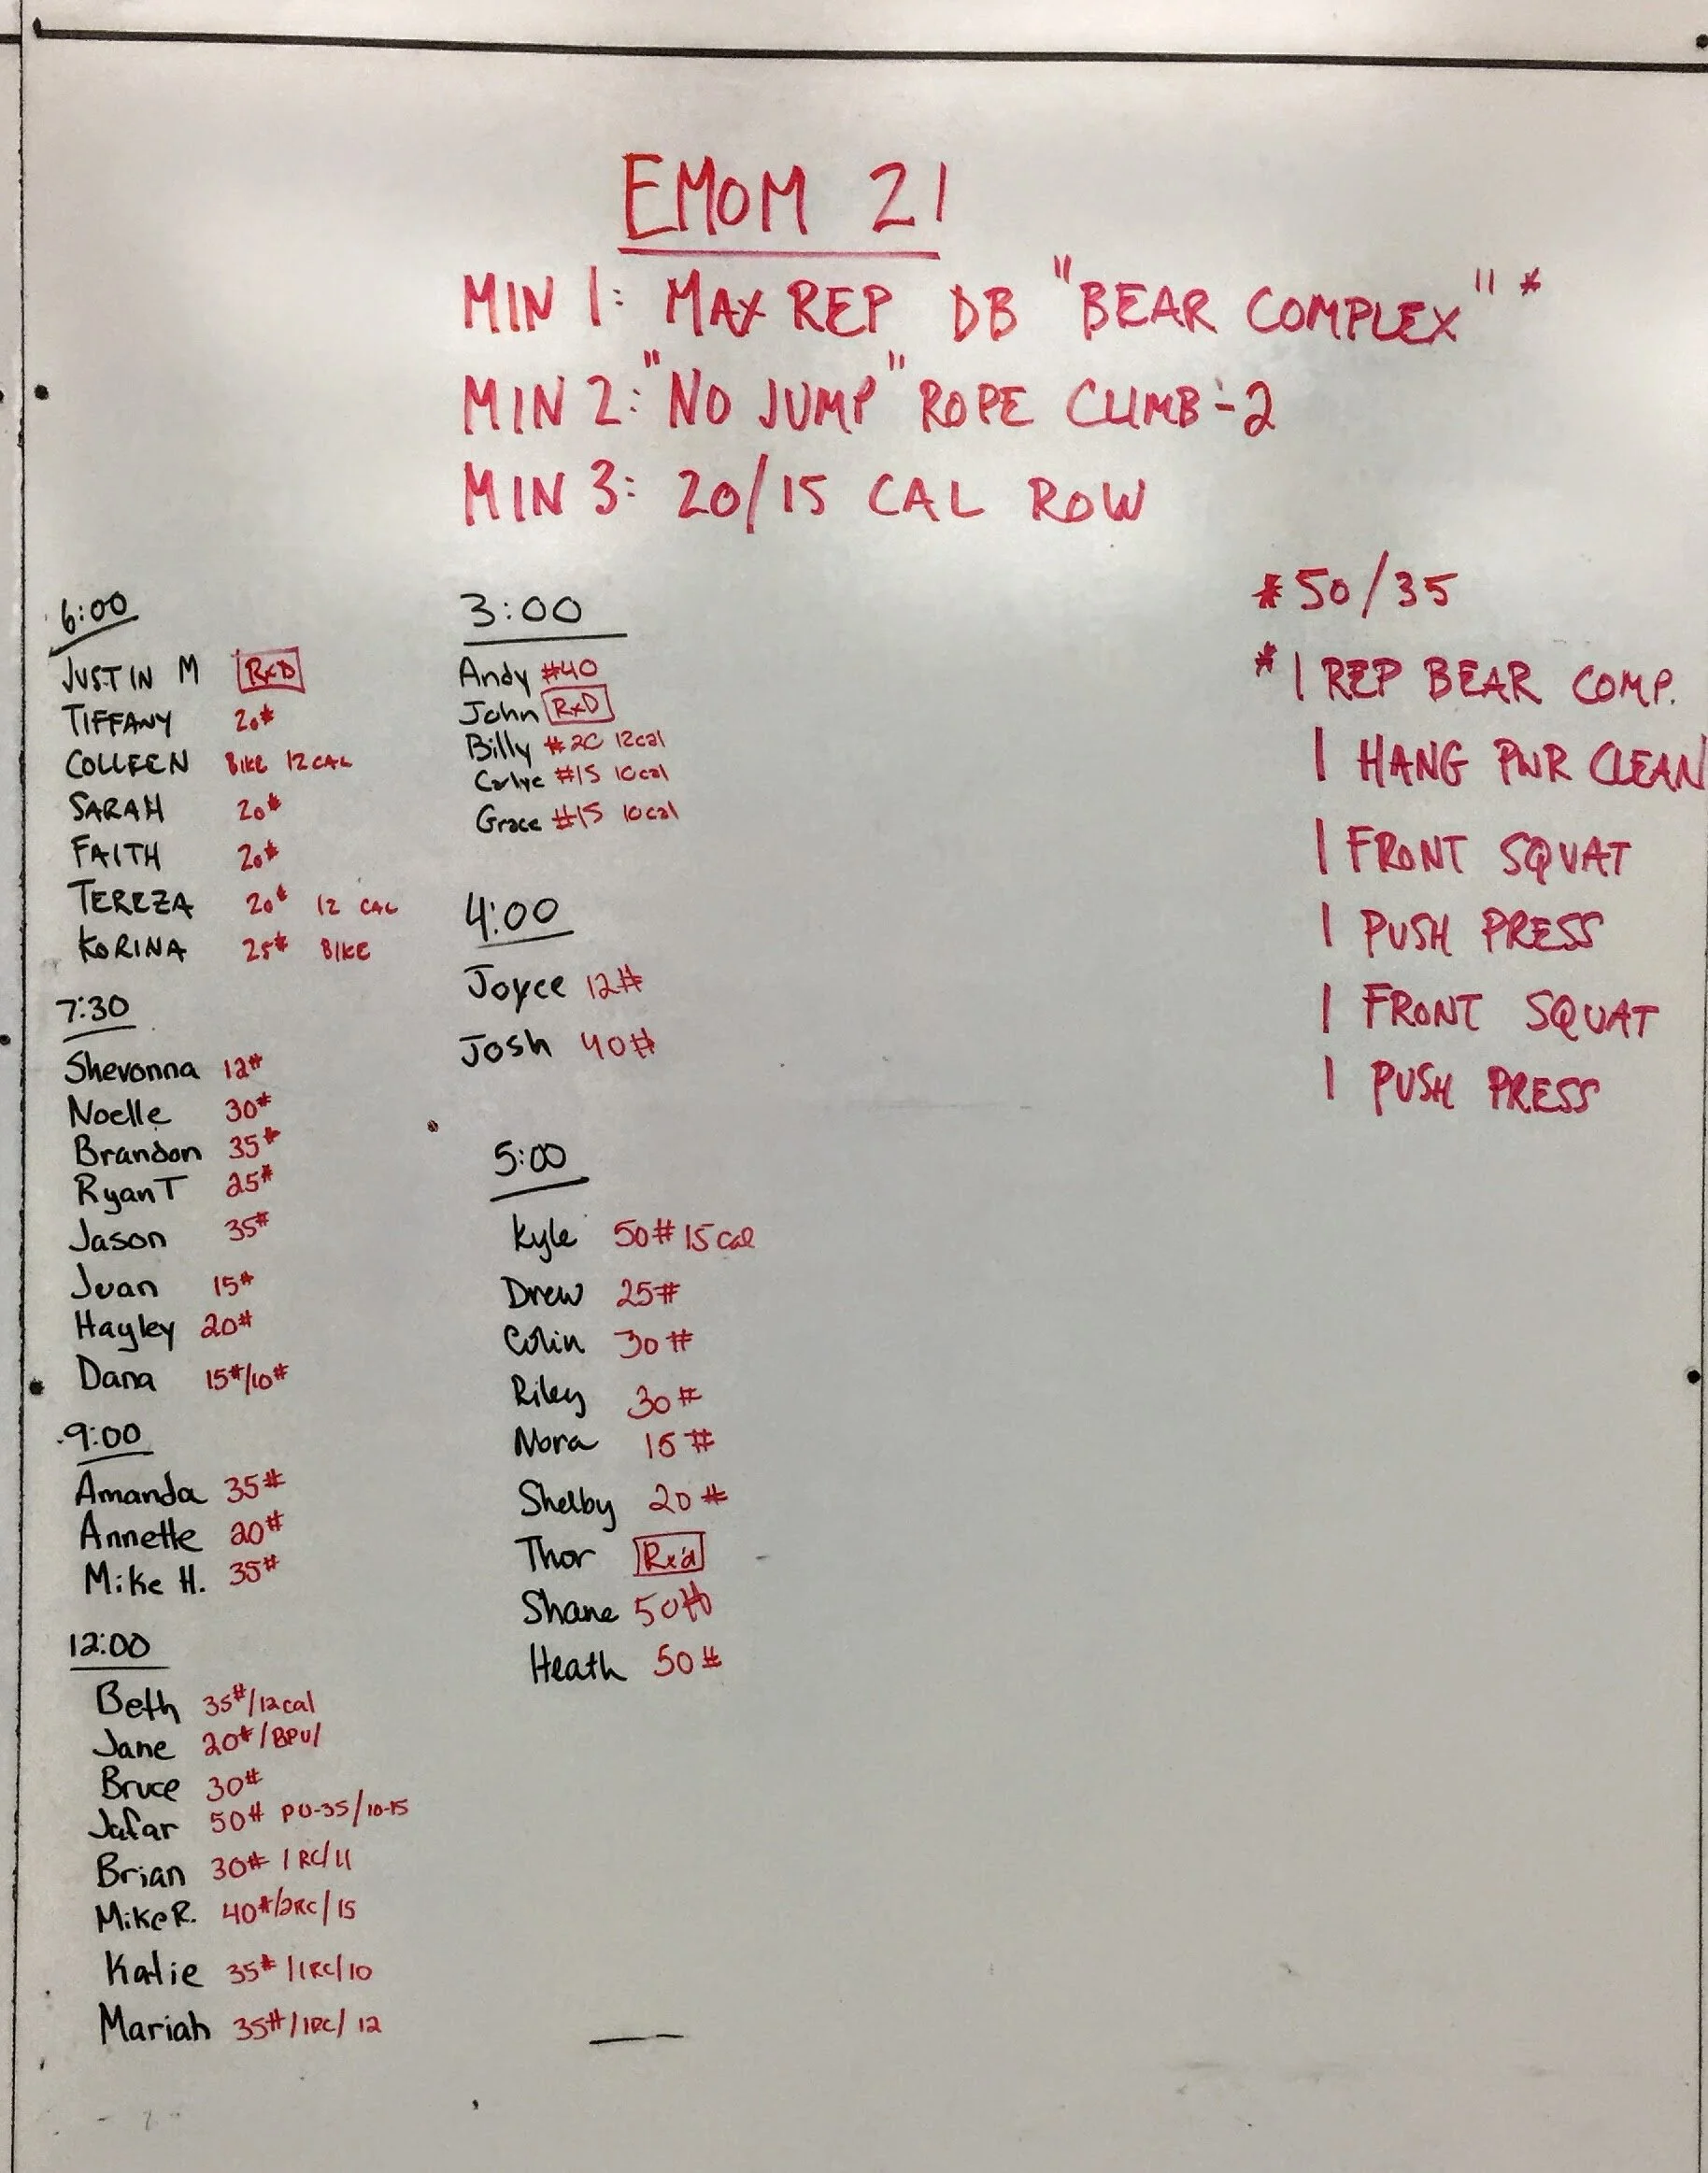 EMOM 21
MIN 1: MAX REP DB "BEAR COMPLEX" *
MIN 2: "NO JUMP" ROPE CLIMB - 2
MIN 3: 20/15 CAL ROW
* 50/35
* 1 REP BEAR COMP.
1 HANG PWR CLEAN
1 FRONT SQUAT
1 PUSH PRESS
1 FRONT SQUAT
1 PUSH PRESS
6:00
JUSTIN M RxD
TIFFANY 20#
COLLEEN BIKE 12 CAL
SARAH 20#
FAITH 20#
TEREZA 20# 12 CAL
KORINA 25# BIKE
7:30
Shevonna 12#
Noelle 30#
Brandon 35#
Ryan T 25#
Jason 35#
Juan 15#
Hayley 20#
Dana 15#/10#
9:00
Amanda 35#
Annette 20#
Mike H. 35#
12:00
Beth 35#/12cal
Jane 20#/BPU/
Bruce 30#
Jafar 50# PU-35/10-15
Brian 30# 1 RC/11
Mike R. 40#/2RC/15
Katie 35#/1RC/10
Mariah 35#/1RC/12
3:00
Andy #40
John RxD
Billy #20 12cal
#15 10cal
Grace #15 10cal
4:00
Joyce 12#
Josh 40#
5:00
Kyle 50# 15 cal
Drew 25#
Colin 30#
Riley 30#
Nora 15#
Shelby 20#
Thor Rx'd
Shane 50#
Heath 50#